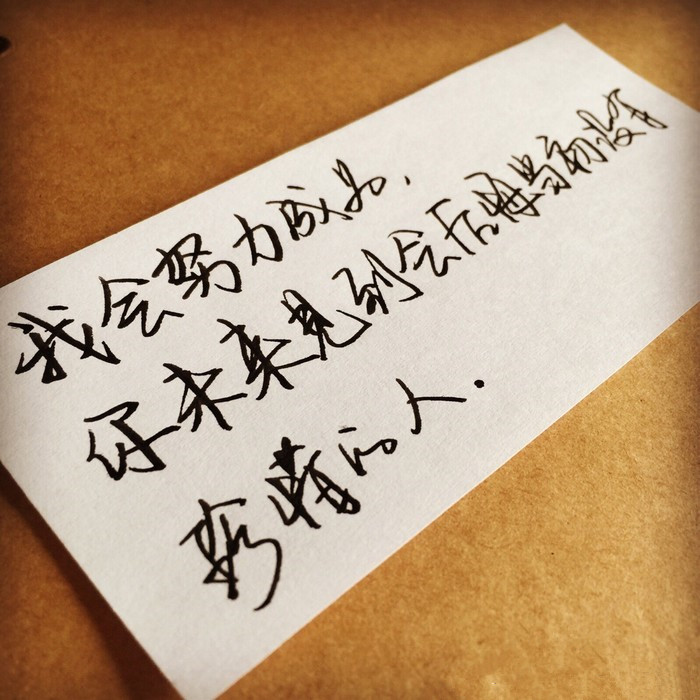 我会努力成为.
你未来见到会后悔当初没有
珍惜的人.